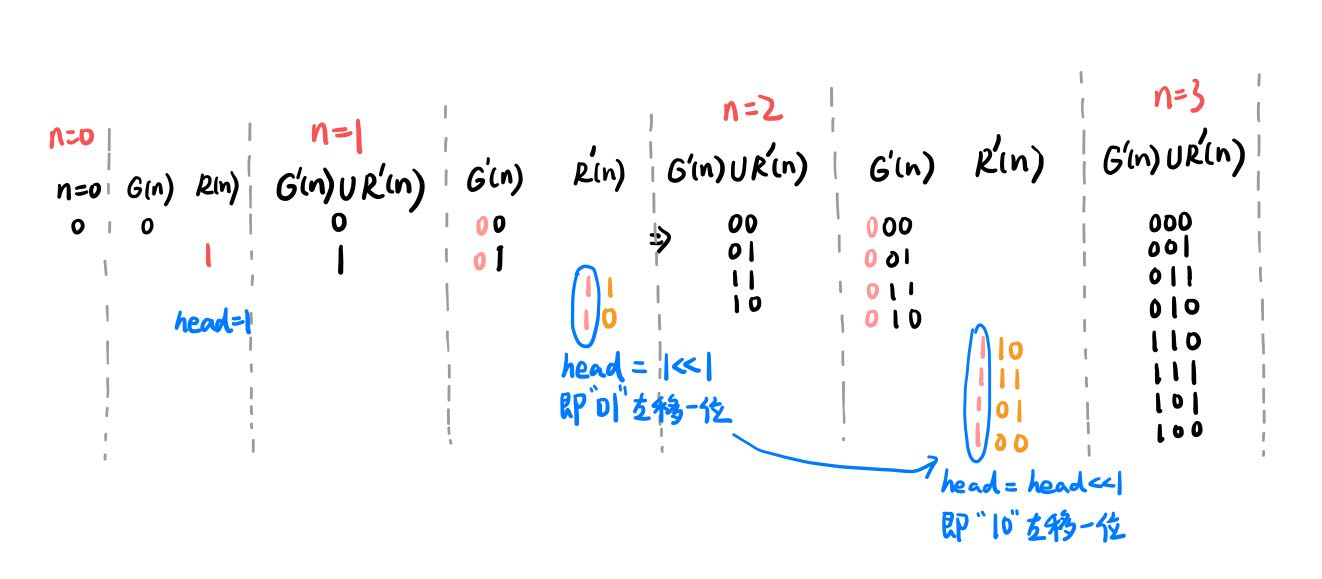 n=0
n=0
0
G(n) R(n)
0
1
head=1
n=1
G'(n)∪R'(n)
0
1
G'(n)
00
01
R'(n)
11
10
head = 1<<1
即"01"左移一位
⇒
n=2
G'(n)∪R'(n)
00
01
11
10
G'(n)
000
001
011
010
R'(n)
110
111
101
100
head = head<<1
即"10"左移一位
n=3
G'(n)∪R'(n)
000
001
011
010
110
111
101
100